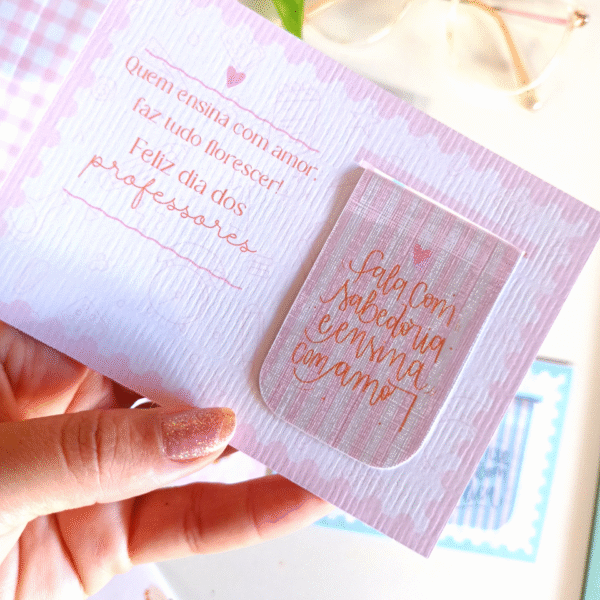 Quem ensina com amor,
faz tudo florescer!
Feliz dia dos
professores
fala com
sabedoria
e ensina
com amor